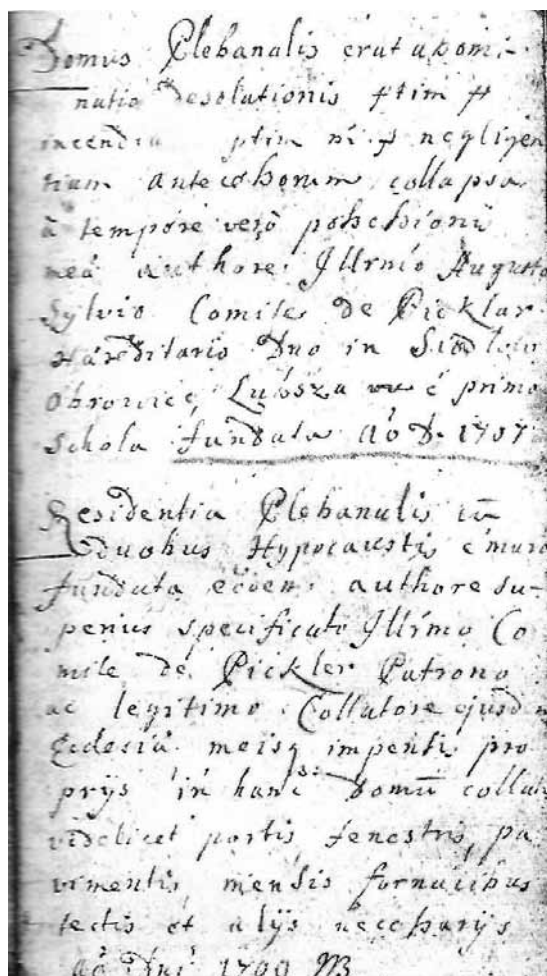 Domus Plebanalis erat abomi-
natio desolationis ptim p
incendia ptim negligen
tiam antecessorum collapsa
à tempore verò possessionis
meâ authore Illrmo Augusto
Sylvio Comite de Picklar
Hæreditario Dno in
Obrowiec, Lubsza é primo
Schola fundata aó D. 1707
Residentia Plebanalis cū
duobus Hypocaustis é muro
fundata eodem authore su-
perius specificato Illrmo Co
mite de Pickler Patrono
ac legitimo Collatore ejusdem
Ecclesiâ meisq impensis pro
prijs in hanc domū collatis
videlicet portis fenestris, pa
vimentis, mensis fornacibus
tectis et alijs necessarijs
aó Dni